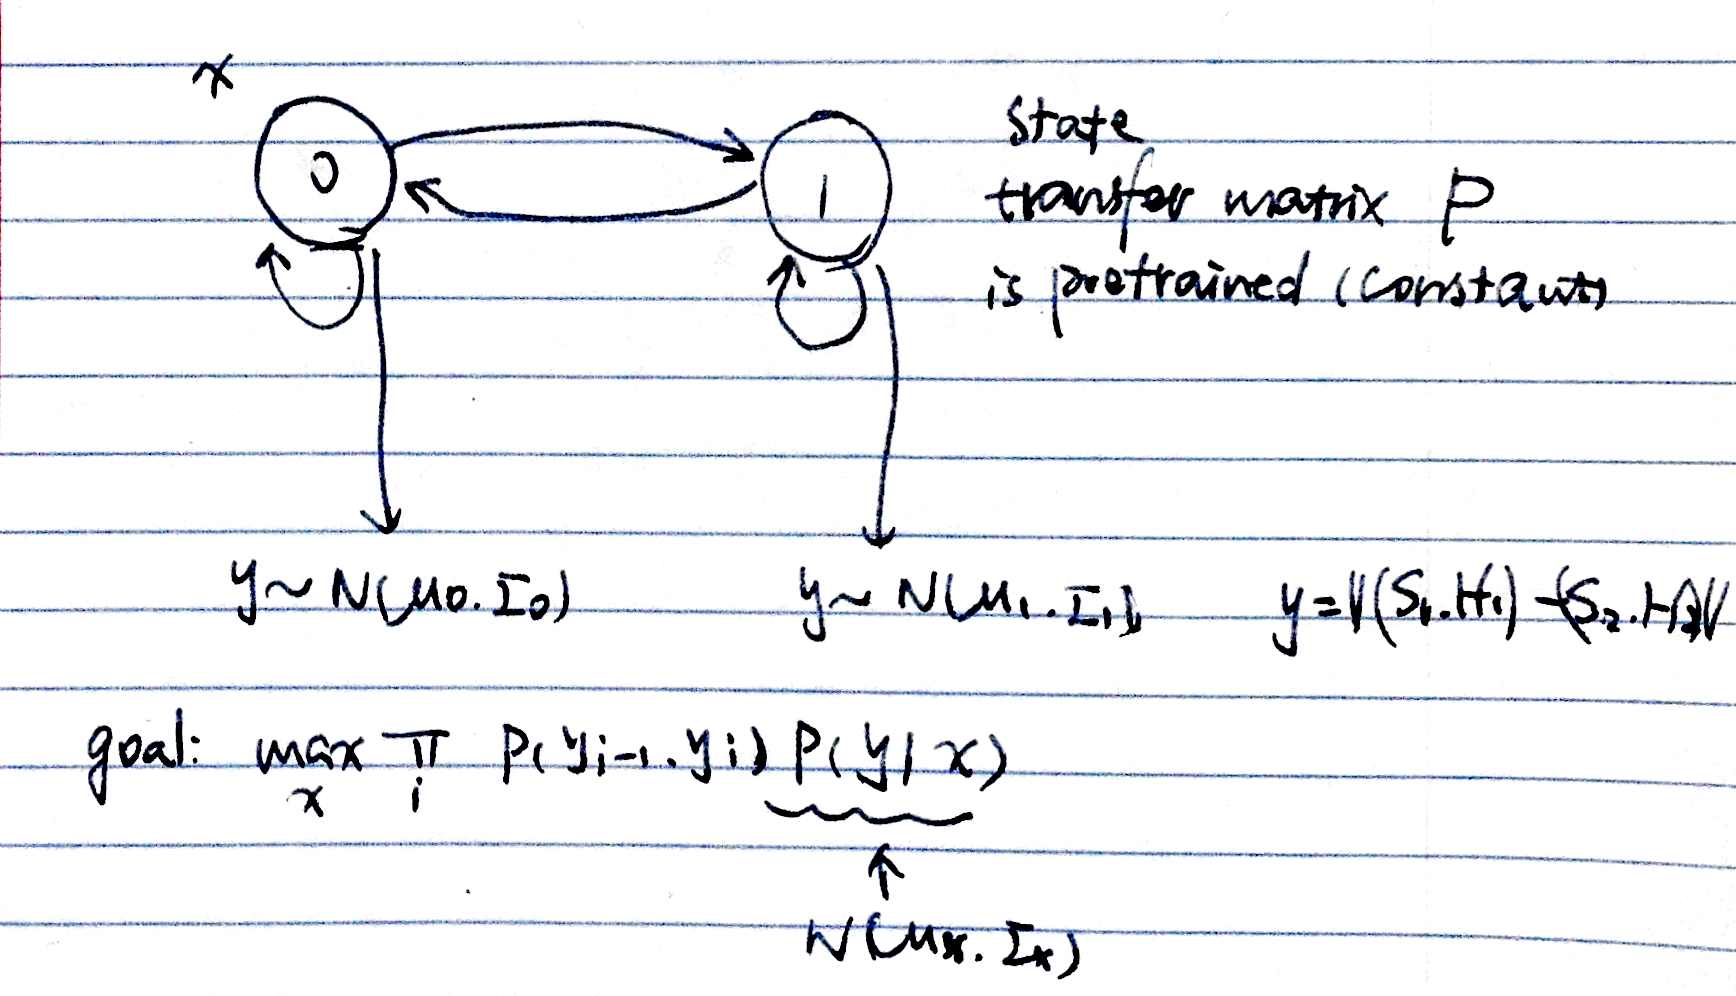 x
0
1
State
transfer matrix P
is pretrained (constant)
y ~ N(μ0. Σ0)
y ~ N(μ1. Σ1)
y = |(S1.H1) - (S2.H2)|
goal: max x Π i P(yi-1. yi) P(y|x)
↑
N(μx. Σx)